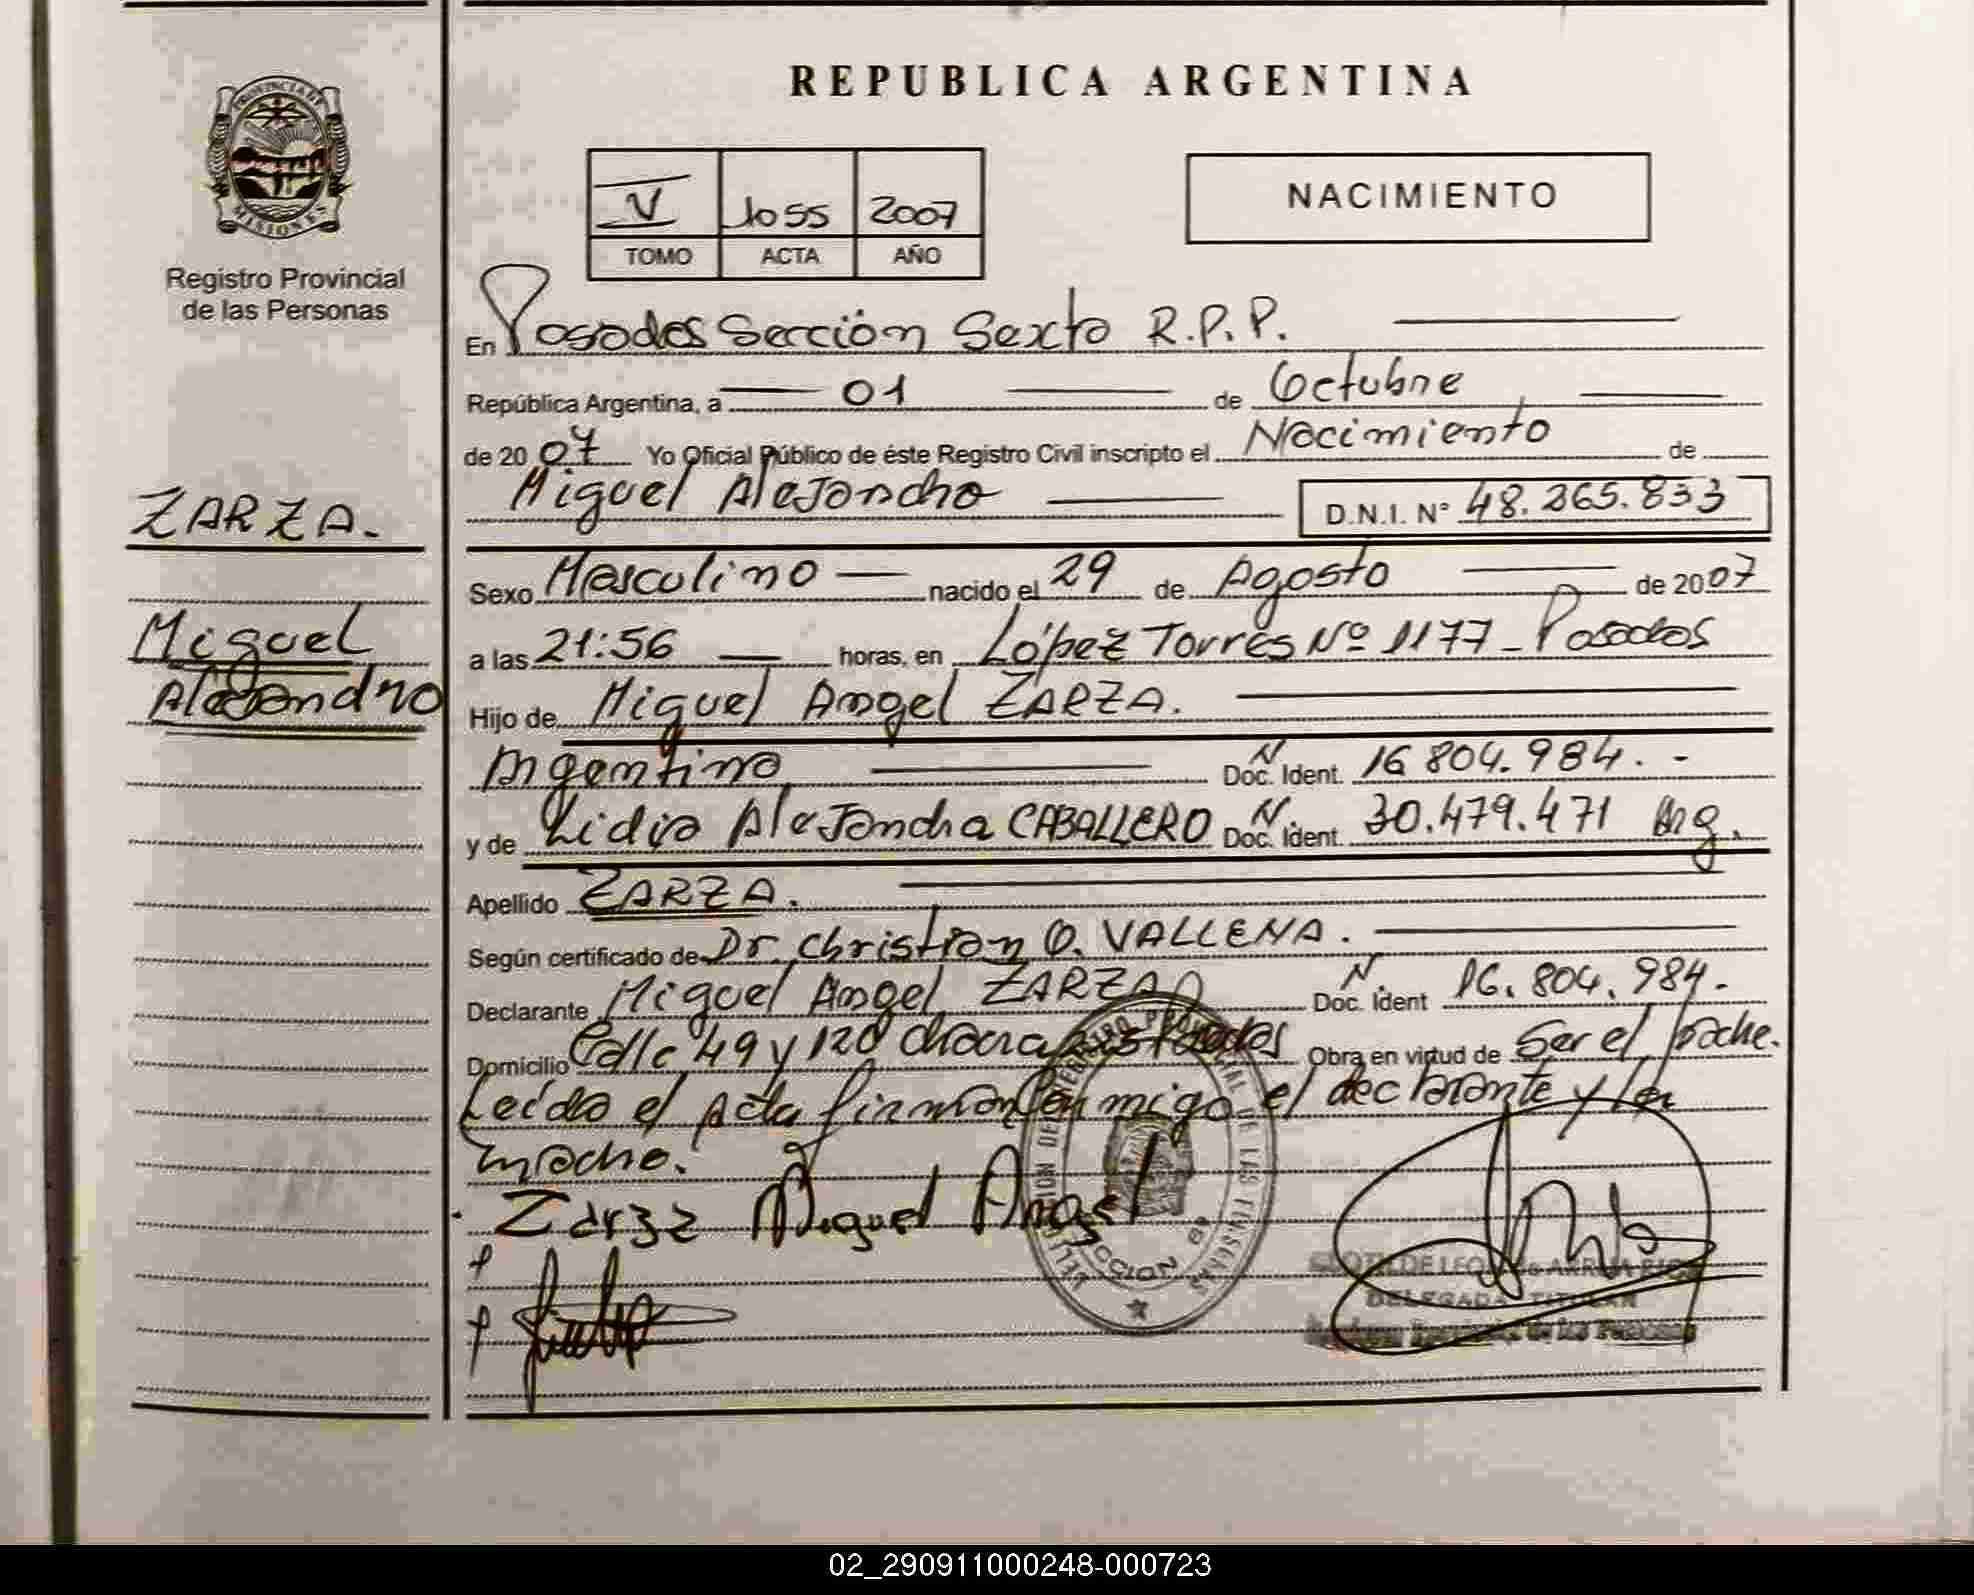 REPUBLICA ARGENTINA
PROVINCIA DE
MISIONES
Registro Provincial
de las Personas
V 1055 2007
TOMO ACTA AÑO
NACIMIENTO
ZARZA.
Miguel
Alejandro
En Posadas Sección Sexta R.P.P.
República Argentina, a 01 de Octubre
de 2007 Yo Oficial Público de éste Registro Civil inscripto el Nacimiento de
Miguel Alejandro D.N.I. N° 48.265.833
Sexo Masculino nacido el 29 de Agosto de 2007
a las 21:56 horas, en López Torres Nº 1177 - Posadas
Hijo de Miguel Angel ZARZA.
Argentino N Doc. Ident. 16 804.984. -
y de Lidia Alejandra CABALLERO N. Doc. Ident. 30.479.471 Arg.
Apellido ZARZA.
Según certificado de Dr. Christian O. VALLENA.
Declarante Miguel Angel ZARZA N. Doc. Ident 16.804.984.
Domicilio Calle 49 y 120 chacra Posadas Obra en virtud de Ser el padre.
Leída el Acta firman conmigo el declarante y la
madre.
Zarza Miguel Angel
DELEGADA TITULAR
02_290911000248-000723